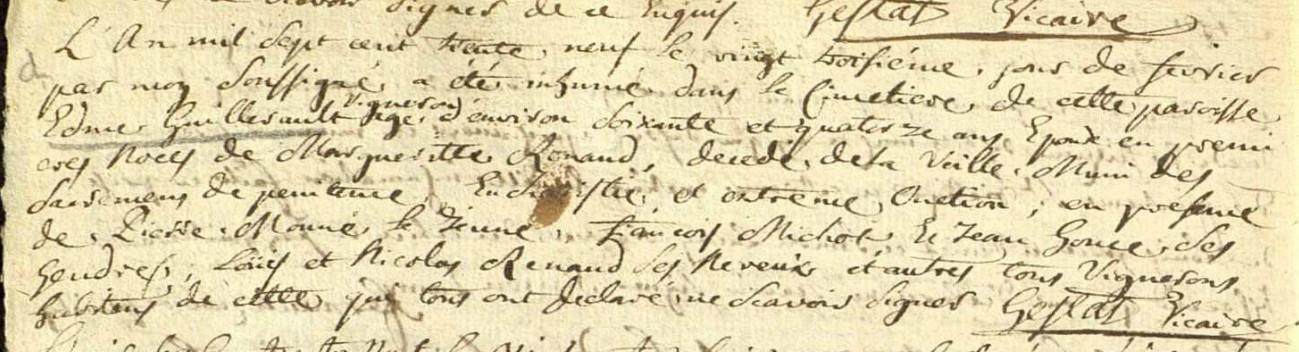 sçavoir signer de ce Enquis. Gestat Vicaire
L'An mil sept cent trente neuf le vingt troisiéme jour de fevrier
par moy soussigné a été inhumé dans le Cimetiere de cette paroisse
Edme Guillerault vigneron agé d'environ soixante et quatorze ans Epoux en premi
eres noces de Margueritte Renaud, decedé de la Veille Muni des
Sacremens de penitence, Eucharistie, et extreme Onction, en presence
de Pierre Monné le Jeune, François Michot et Jean Gouce, ses
gendres, Loüis et Nicolas Renaud ses Neveux et autres tous Vignerons
habitens de cette qui tous ont declaré ne scavoir signer Gestat Vicaire